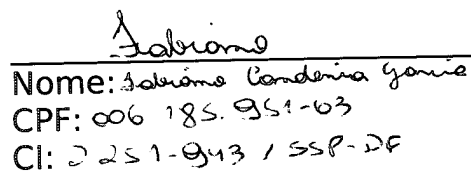 Fabiano
Nome: Fabiano Candenia Garcia
CPF: 006 185.951-03
CI: 2251-943 / SSP-DF